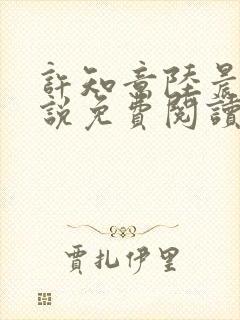 許知意陸晨
說免費閱讀
賈扎伊里